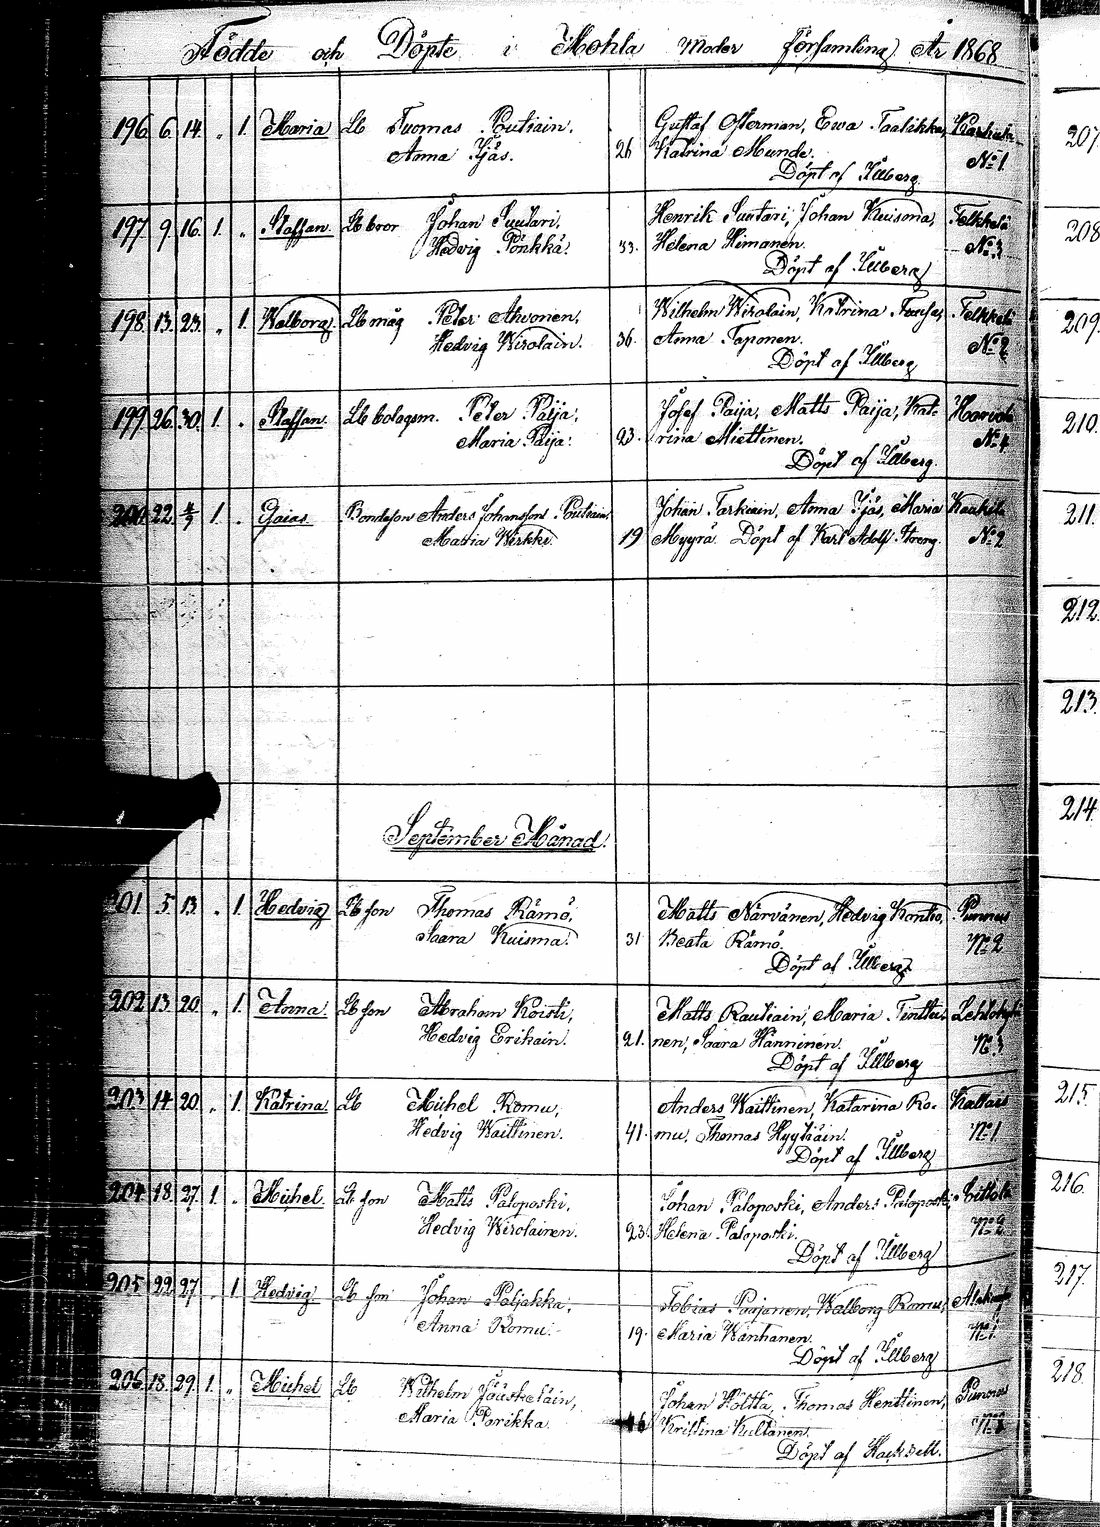 Födde och Döpte i Mohla Moder församling År 1868
196. 6. 14. „ 1. Maria Lb Tuomas Poutiain, Gustaf Osterman, Ewa Taatikka,
Anna Ijäs. 26 Katrina Munde. No 1
Döpt af Illberg
197 9. 16. 1. „ Staffan. Lb bror Johan Suutari, Henrik Suutari, Johan Kuisma, Telkkälä
Hedvig Pönkkä. 33. Helena Himanen. No 3
Döpt af Illberg
198. 13. 23. „ 1. Walborg. Lb måg Peter Ahvonen, Wilhelm Wirolain, Katrina
Hedvig Wirolain. 36. Anna Taponen. No 2
Döpt af Illberg
199. 26. 30. 1. „ Staffan. Lb bolagsm. Peter Paija, Josef Paija, Matts Paija, Kat-
Maria Paija. 23. rina Miettinen. No 4
Döpt af Illberg.
200. 22. 4/9 1. „ Gaias. Bondeson Anders Johansson Poutiain, Johan Tarkiain, Anna Ijäs, Maria
Maria Wirkki. 19 Myyrä. Döpt af Karl Adolf Streng. No 2
September Månad.
201 5. 13. „ 1. Hedvig Lb son Thomas Rämö, Matts Närvänen, Hedvig Kontio, Punnus
Saara Kuisma. 31 Beata Rämö. No 2
Döpt af Illberg
202 13 20. „ 1. Anna. Lb son Abraham Koisti, Matts Rautiain, Maria Tinttu-
Hedvig Erikain. 21. nen, Saara Hänninen. No 3
Döpt af Illberg
203 14 20 „ 1. Katrina. Lb Michel Romu, Anders Waittinen, Katarina Ro-
Hedvig Waittinen. 41. mu, Thomas Hyytiäin. No 1
Döpt af Illberg
204 18. 27. 1. „ Michel. Lb son Matts Paloposki, Johan Paloposki, Anders Paloposki,
Hedvig Wirolainen. 23. Helena Paloposki. No 2
Döpt af Illberg
205 22 27 „ 1 Hedvig. Lb son Johan Paljakka, Tobias Paajonen, Walborg Romu,
Anna Romu. 19. Maria Wanhanen. No 1
Döpt af Illberg
206. 18. 29. 1. „ Michel Lb Wilhelm Jääskeläin, Johan Höltta, Thomas Henttinen, Punnus
Maria Parikka. 46 Kristina Kultanen.
Döpt af Hackzell.
207.
208
209.
210.
211.
212.
213.
214
215.
216.
217.
218.